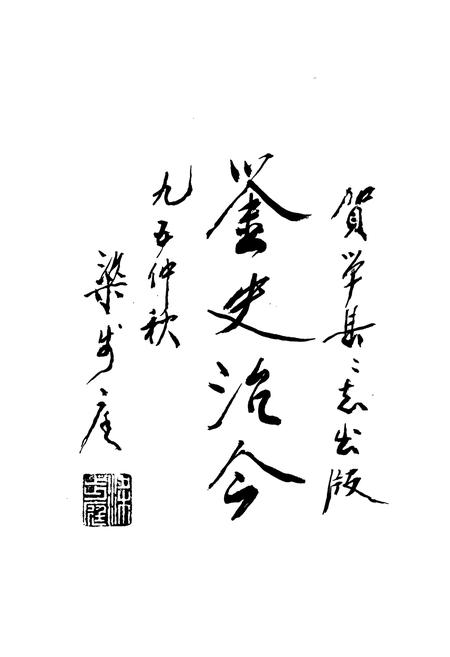 賀单县々志出版
鉴史治今
九五仲秋
梁步庭
梁步庭